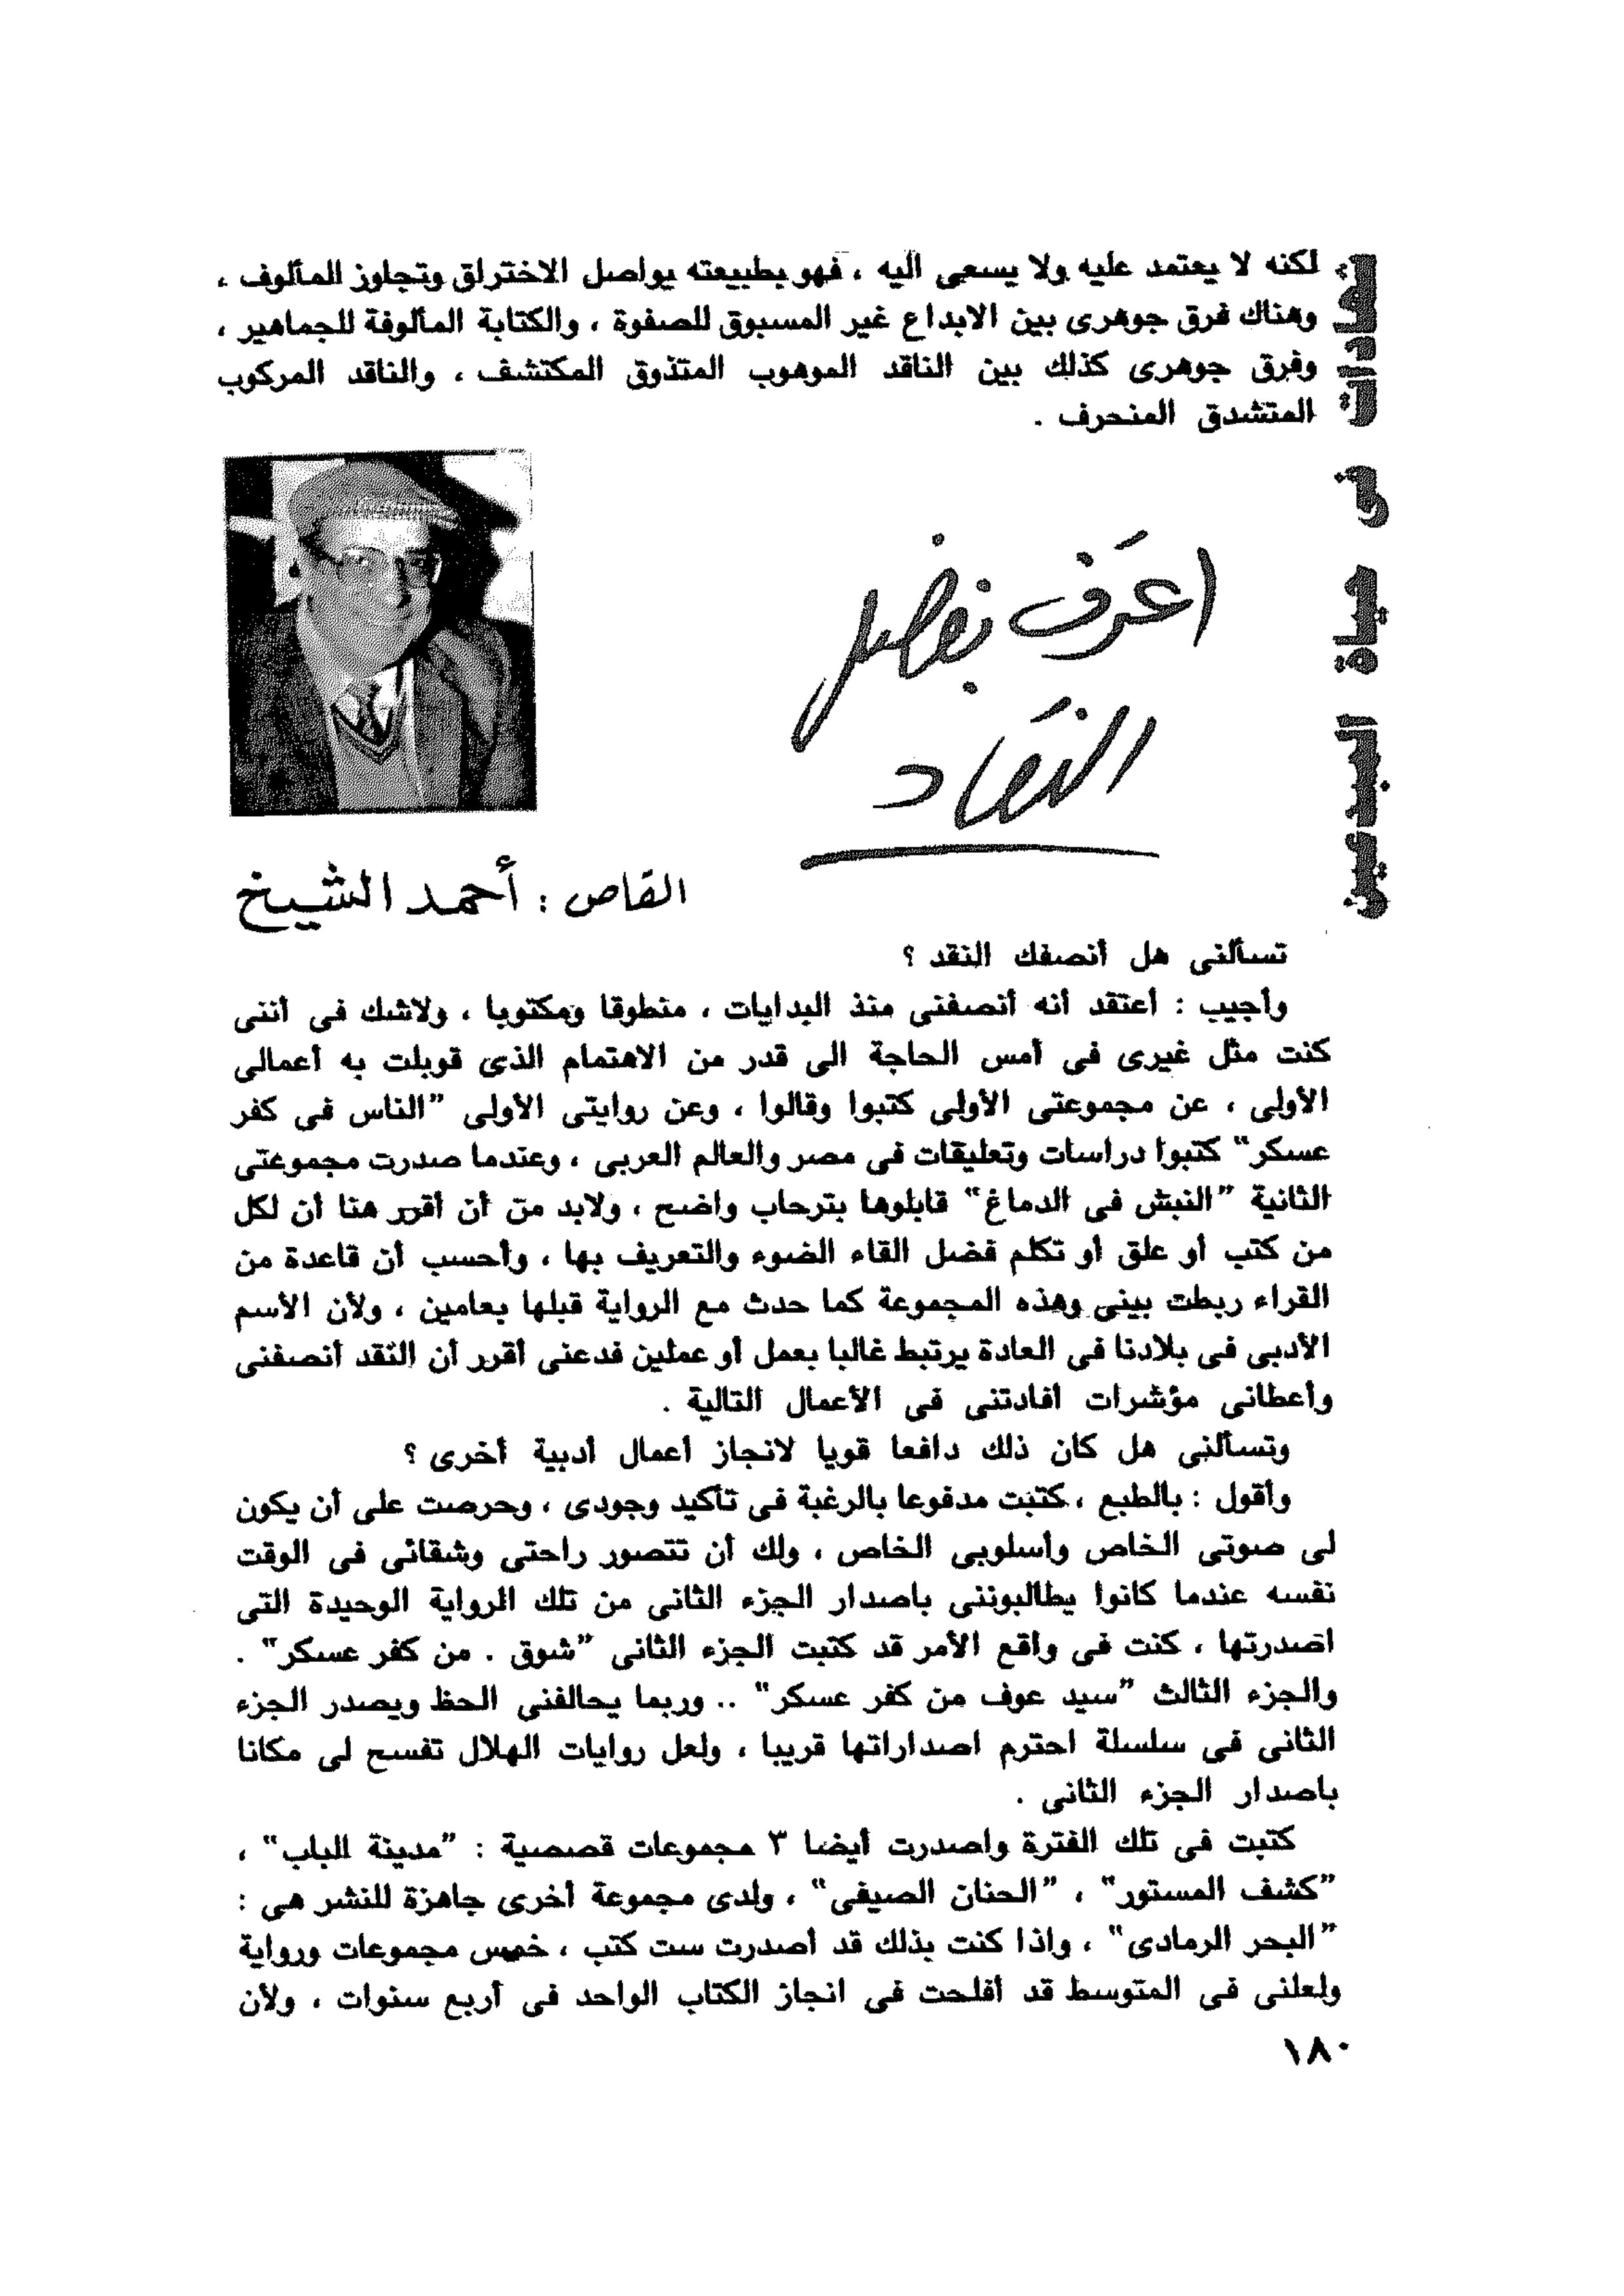 لكنه لا يعتمد عليه ولا يسعى اليه ، فهو بطبيعته يواصل الاختراق وتجاوز المألوف ،
وهناك فرق جوهرى بين الابداع غير المسبوق للصفوة ، والكتابة المألوفة للجماهير ،
وفرق جوهرى كذلك بين الناقد الموهوب المتذوق المكتشف ، والناقد المركوب
المتشدق المنحرف .
شهادات فى حياة المبدعين
اعترف بفضل
النقاد
القاص : أحمد الشيخ
تسألنى هل أنصفك النقد ؟
وأجيب : أعتقد أنه أنصفنى منذ البدايات ، منطوقا ومكتوبا ، ولاشك فى أننى
كنت مثل غيرى فى أمس الحاجة الى قدر من الاهتمام الذى قوبلت به أعمالى
الأولى ، عن مجموعتى الأولى كتبوا وقالوا ، وعن روايتى الأولى "الناس فى كفر
عسكر" كتبوا دراسات وتعليقات فى مصر والعالم العربى ، وعندما صدرت مجموعتى
الثانية "النبش فى الدماغ" قابلوها بترحاب واضح ، ولابد من أن أقرر هنا أن لكل
من كتب أو علق أو تكلم فضل القاء الضوء والتعريف بها ، وأحسب أن قاعدة من
القراء ربطت بينى وهذه المجموعة كما حدث مع الرواية قبلها بعامين ، ولأن الأسم
الأدبى فى بلادنا فى العادة يرتبط غالبا بعمل أو عملين فدعنى أقرر أن النقد أنصفنى
وأعطانى مؤشرات أفادتنى فى الأعمال التالية .
وتسألنى هل كان ذلك دافعا قويا لانجاز أعمال أدبية أخرى ؟
وأقول : بالطبع ، كتبت مدفوعا بالرغبة فى تأكيد وجودى ، وحرصت على أن يكون
لى صوتى الخاص وأسلوبى الخاص ، ولك أن تتصور راحتى وشقائى فى الوقت
نفسه عندما كانوا يطالبوننى باصدار الجزء الثانى من تلك الرواية الوحيدة التى
اصدرتها ، كنت فى واقع الأمر قد كتبت الجزء الثانى "شوق . من كفر عسكر" .
والجزء الثالث "سيد عوف من كفر عسكر" .. وربما يحالفنى الحظ ويصدر الجزء
الثانى فى سلسلة احترم اصداراتها قريبا ، ولعل روايات الهلال تفسح لى مكانا
باصدار الجزء الثانى .
كتبت فى تلك الفترة واصدرت أيضا ٣ مجموعات قصصية : "مدينة الباب" ،
"كشف المستور" ، "الحنان الصيفى" ، ولدى مجموعة أخرى جاهزة للنشر هى :
"البحر الرمادى" ، واذا كنت بذلك قد أصدرت ست كتب ، خمس مجموعات ورواية
ولعلنى فى المتوسط قد أفلحت فى انجاز الكتاب الواحد فى أربع سنوات ، ولأن
١٨٠